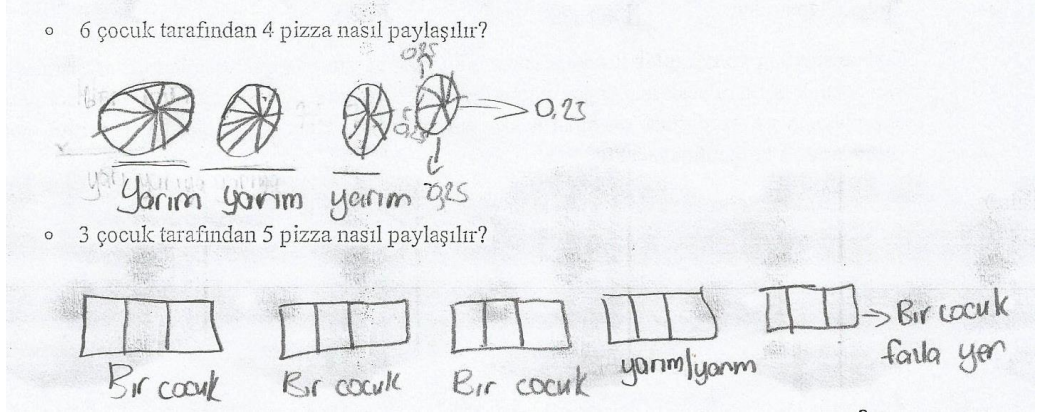 6 çocuk tarafından 4 pizza nasıl paylaşılır?
0,25
0,25
0,25
Yarım yarım yarım 0,25
3 çocuk tarafından 5 pizza nasıl paylaşılır?
Bir cocuk Bir cocuk Bir cocuk yarım/yarım Bir cocuk
fazla yer